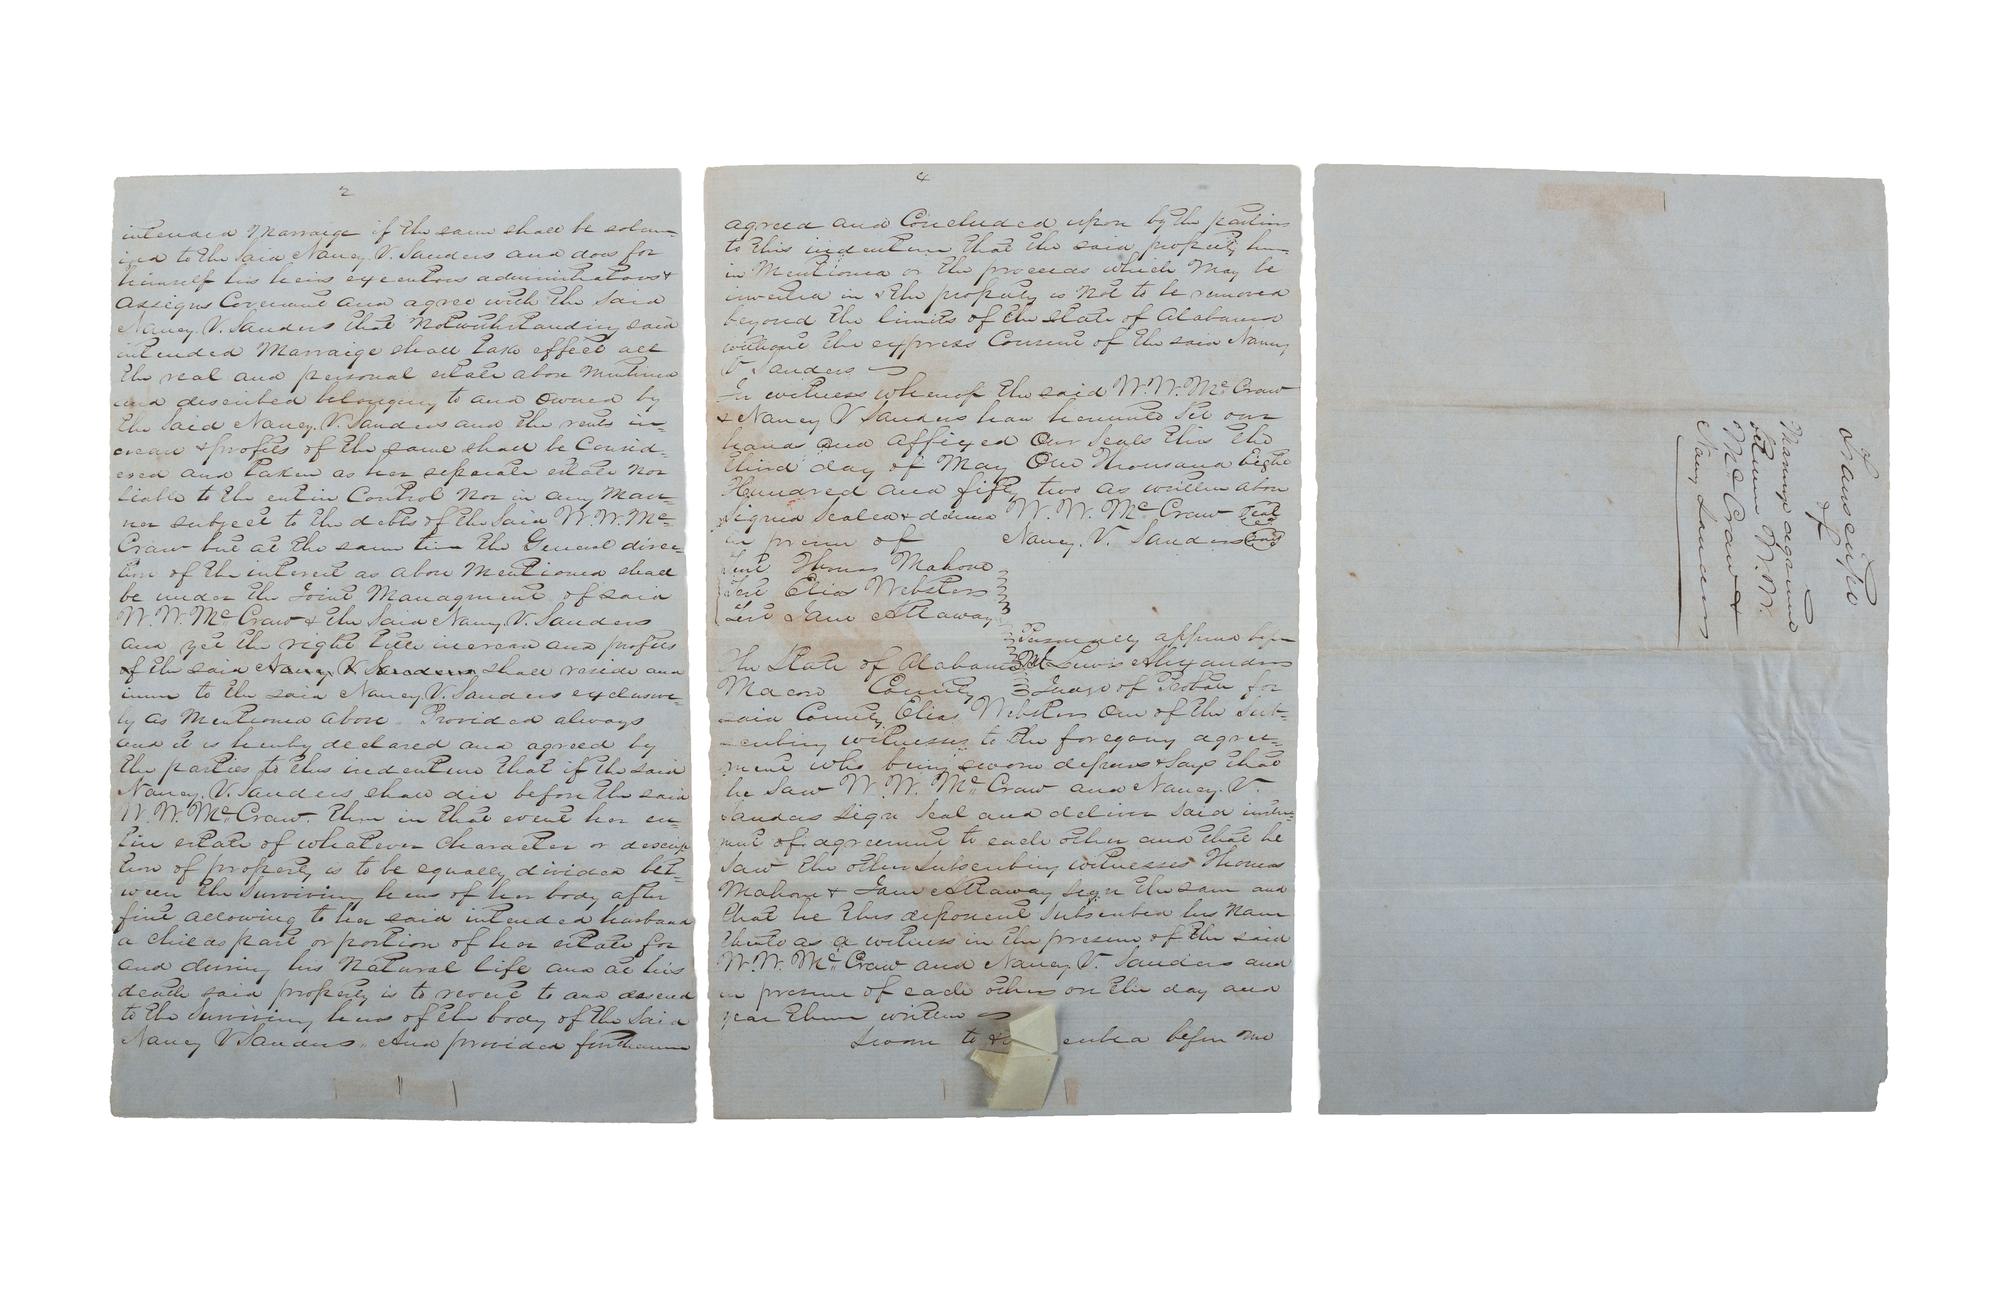 2
intended Marraige if the same shall be solem-
ized to the said Nancy. V. Sanders and does for
himself his heirs executors administrators &
assigns Covenant and agree with the said
Nancy. V. Sanders that Notwithstanding said
intended Marraige shall take effect all
the real and personal estate above mentioned
and described belonging to and owned by
the said Nancy. V. Sanders and the rents in-
crease & profits of the same shall be Consid-
ered and taken as her seperate estate nor
liable to the entire Control Nor in any Man-
ner subject to the debts of the said W. W. Mc
Craw but at the same time the General direc-
tion of the interest as above Mentioned shall
be under the Joint Managment of said
W. W. Mc Craw & the said Nancy. V. Sanders
and yet the right title increase and profits
of the said Nancy V Sanders shall reside and
inure to the said Nancy. V. Sanders exclusive-
ly as Mentioned above. Provided always
and it is hereby declared and agreed by
the parties to this indenture that if the said
Nancy. V. Sanders shall die before the said
W. W. Mc Craw. then in that event her en-
tire estate of whatever Character or descrip
tion of property is to be equally divided bet-
ween the surviving heirs of her body after
first allowing to her said intended husband
a childs part or portion of her estate for
and during his Natural life and at his
death said property is to revert to and descend
to the surviving heirs of the body of the said
Nancy V Sanders. And provided furthermore
4
agreed and Concluded upon by the parties
to this indenture that the said property her-
in Mentioned or the proceeds which May be
invested in & the property is Not to be removed
beyond the limits of the State of Alabama
without the express Consent of the said Nancy
V Sanders
In witness whereof the said W. W. Mc Craw
& Nancy V Sanders have hereunto set our
hands and affixed Our Seals this the
third day of May One thousand Eight
Hundred and fifty two as written above
Signed Sealed & delivered W. W. Mc Craw Seal
in presence of Nancy. V. Sanders Seal
Test Thomas Mahone
Test Elias Webster
Test Jane Attaway
Personally appeared before
The State of Alabama Me Lewis Alexander
Macon County Judge of Probate for
said County Elias Webster One of the sub-
scribing witnesses to the foregoing agree-
ment who being sworn deposes & says that
he saw W. W. Mc Craw and Nancy. V.
Sanders sign seal and deliver said instru-
ment of agreement to each other and that he
saw the other subscribing witnesses Thomas
Mahone & Jane Attaway sign the same and
that he this deponent subscribed his Name
thereto as a witness in the presence of the said
W. W. Mc Craw and Nancy. V. Sanders and
in presence of each other on the day and
year therein written
Sworn to & cribed before me
Transcript
of
Marriage agreement
between W. W.
Mc Craw &
Nancy Sanders